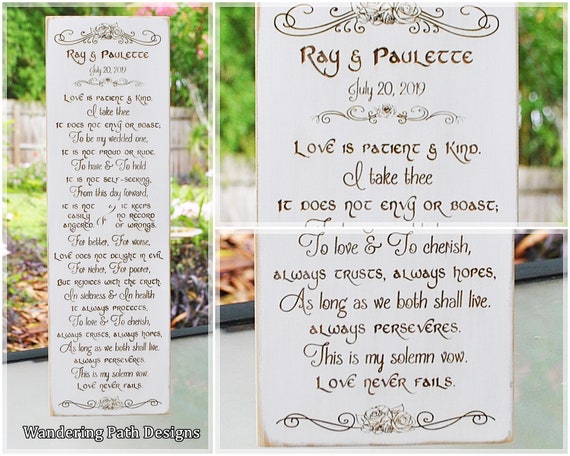 Ray & Paulette
July 20, 2019
Love is patient & kind.
I take thee
It does not envy or boast;
To be my wedded one,
It is not proud or rude.
To have & To hold
It is not self-seeking,
From this day forward,
It is not easily angered, & it keeps no record of wrongs.
For better, For worse,
Love does not delight in evil
For richer, For poorer,
But rejoices with the truth.
In sickness & In health
It always protects,
To love & To cherish,
always trusts, always hopes,
As long as we both shall live.
always perseveres.
This is my solemn vow.
Love never fails.
Wandering Path Designs
Ray & Paulette
July 20, 2019
Love is patient & kind.
I take thee
It does not envy or boast;
To love & To cherish,
always trusts, always hopes,
As long as we both shall live.
always perseveres.
This is my solemn vow.
Love never fails.